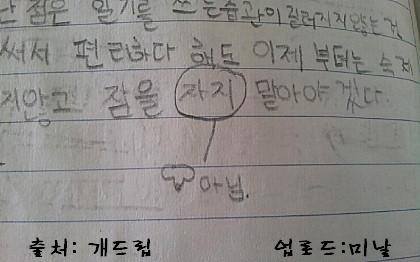 단점은 일기를 쓰는습관이 길러지지않는 것
써서 편리하다 해도 이제 부터는 숙제
지않고 잠을 자지 말아야 겠다.
아님.
출처: 개드립 업로드:미날